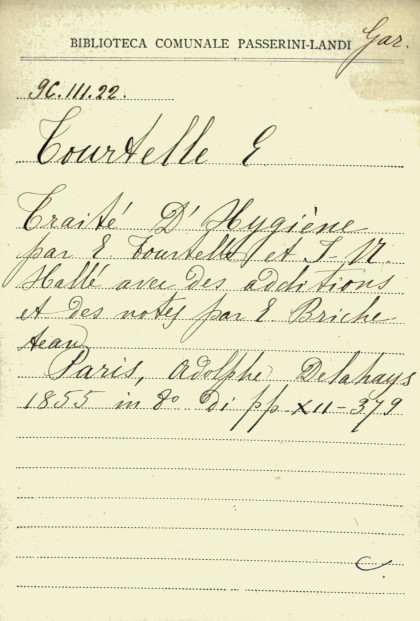 BIBLIOTECA COMUNALE PASSERINI-LANDI Gar.
9C.III.22.
Tourtelle E
Traité D'Hygiène
par E Tourtelle et J-N.
Hallé avec des additions
et des notes par E Briche-
teau
Paris, Adolphe Delahays
1855 in 8º di pp XII-379